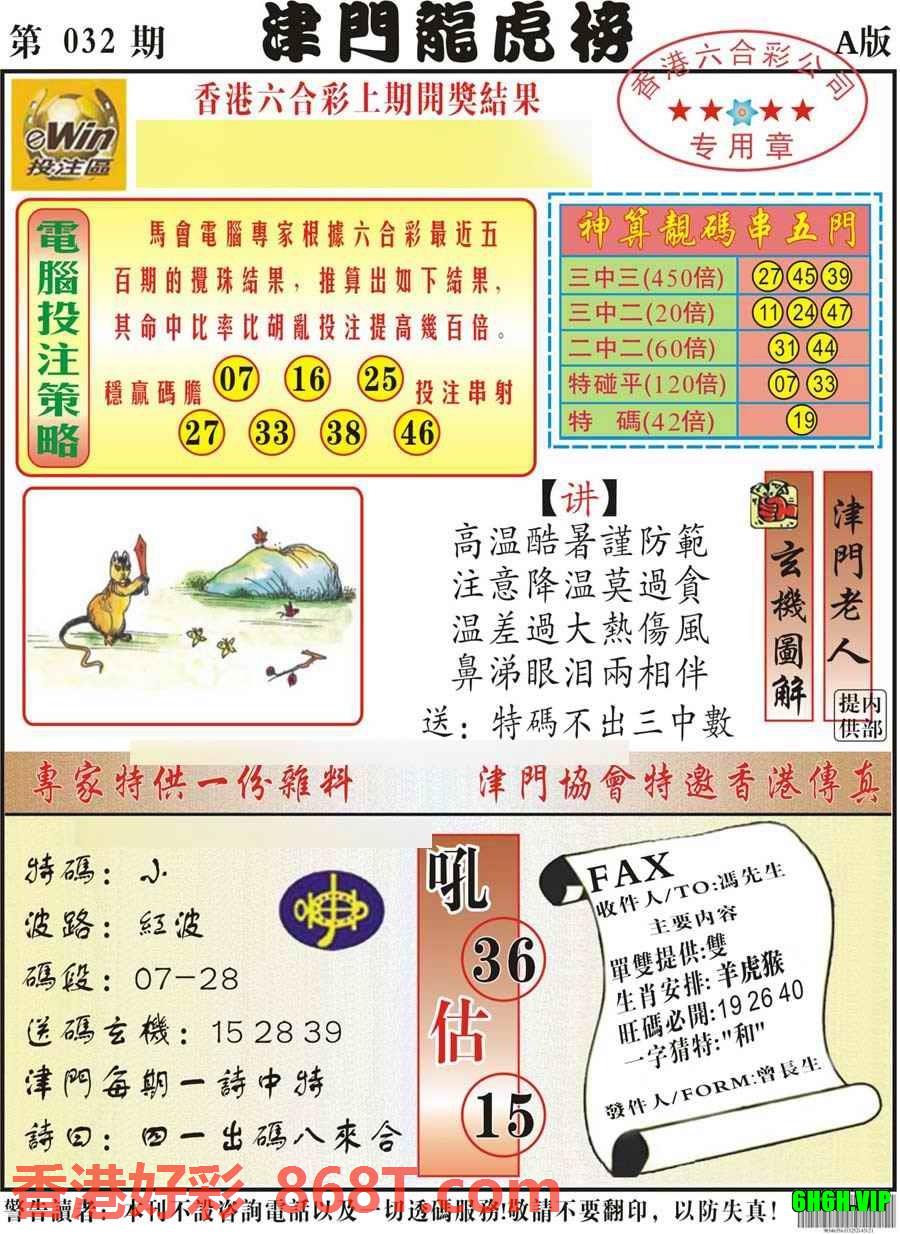 第 032 期
津門龍虎榜
A版
eWin
投注區
香港六合彩上期開獎結果
香港六合彩公司
★★★★
专用章
電腦投注策略
馬會電腦專家根據六合彩最近五
百期的攪珠結果，推算出如下結果，
其命中比率比胡亂投注提高幾百倍。
穩贏碼膽 07 16 25 投注串射
27 33 38 46
神算靚碼串五門
三中三(450倍) 27 45 39
三中二(20倍) 11 24 47
二中二(60倍) 31 44
特碰平(120倍) 07 33
特 碼(42倍) 19
【讲】
高温酷暑謹防範
注意降温莫過貪
温差過大熱傷風
鼻涕眼泪兩相伴
送：特碼不出三中數
玄機圖解
津門老人
内部提供
專家特供一份雜料
津門協會特邀香港傳真
特碼：小
波路：紅波
碼段：07-28
送碼玄機：15 28 39
津門每期一詩中特
詩曰：四一出碼八來合
吼
36
估
15
FAX
收件人/TO:馮先生
主要内容
單雙提供:雙
生肖安排:羊虎猴
旺碼必開:19 26 40
一字猜特:"和"
發件人/FORM:曾長生
香港好彩 868T.com
警告讀者：本刊不設咨詢電話以及一切透碼服務!敬請不要翻印，以防失真！
6H6H.VIP